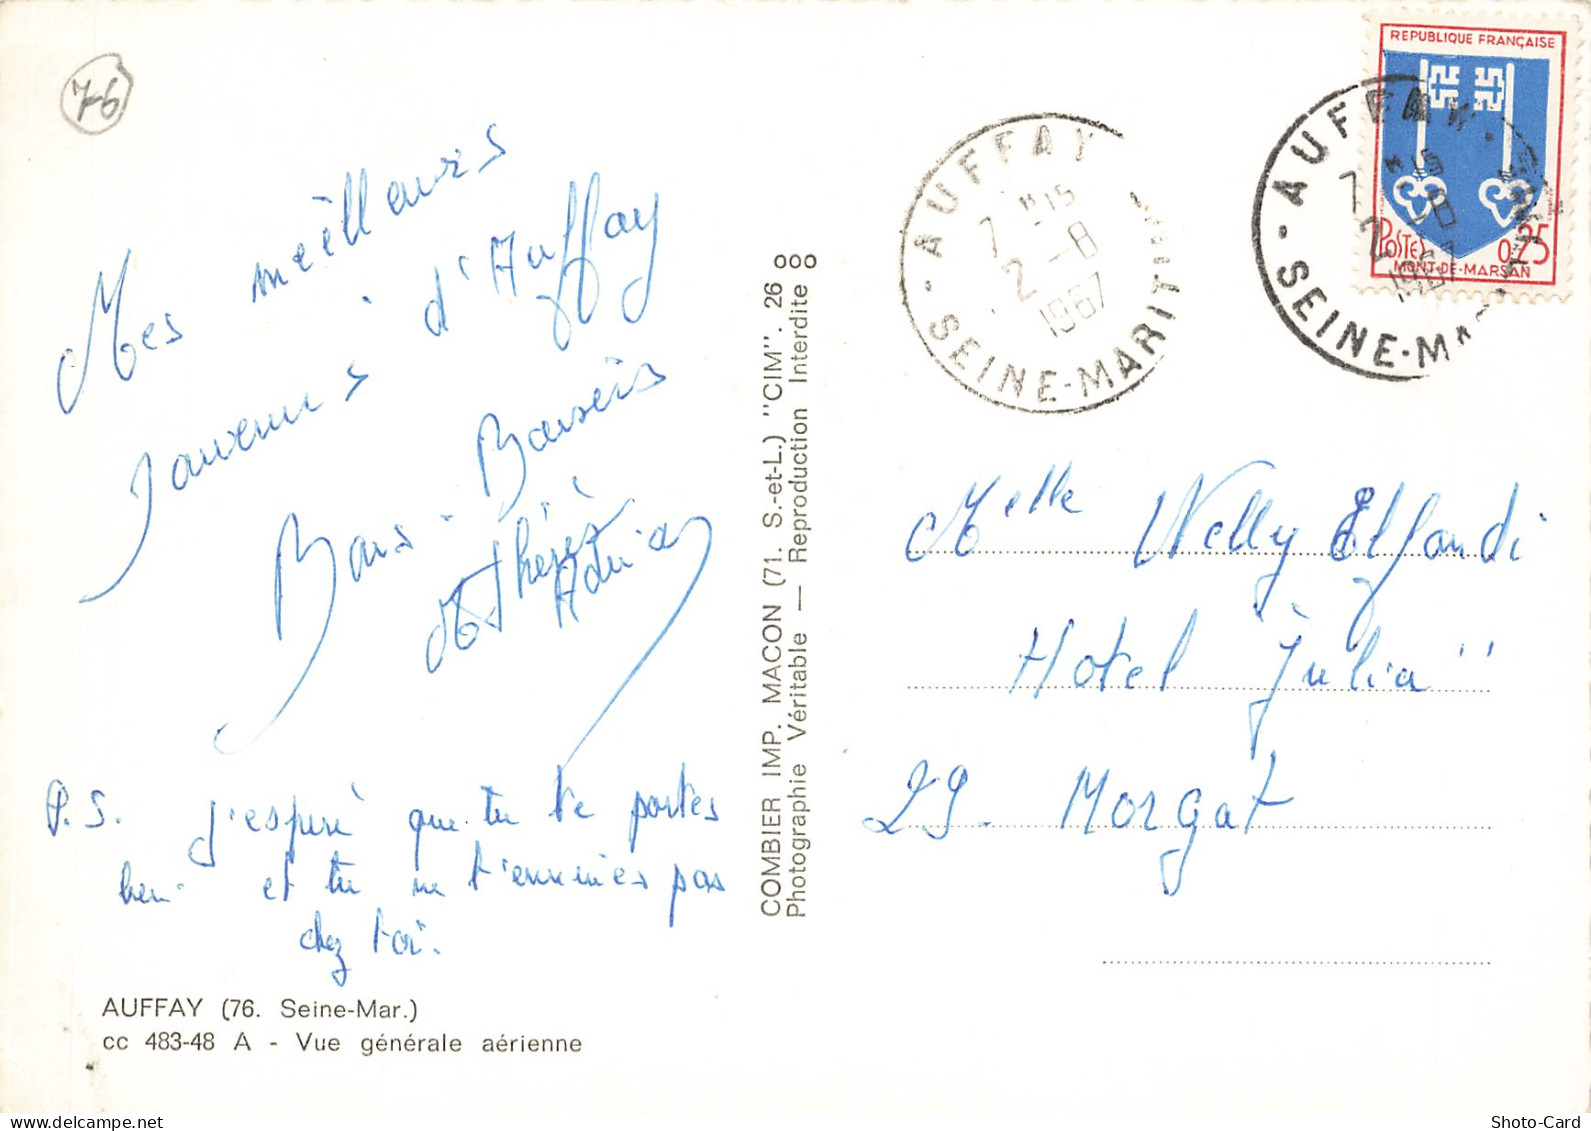 76
Mes meilleurs
souvenirs d'Auffay
Bons Baisers
P.S. J'espère que tu te portes
bien et tu ne t'ennuies pas
chez toi.
AUFFAY (76. Seine-Mar.)
cc 483-48 A - Vue générale aérienne
COMBIER IMP. MACON (71. S.-et-L.) "CIM". 26 ooo
Photographie Véritable — Reproduction Interdite
AUFFAY
7 H15
2 - 8
1967
SEINE-MARITIME
REPUBLIQUE FRANÇAISE
POSTES 0,25
MONT-DE-MARSAN
AUFFAY
7 H15
2 - 8
1967
SEINE-MARITIME
Melle Nelly Elfandi
Hotel Julia"
29. Morgat
Shoto-Card